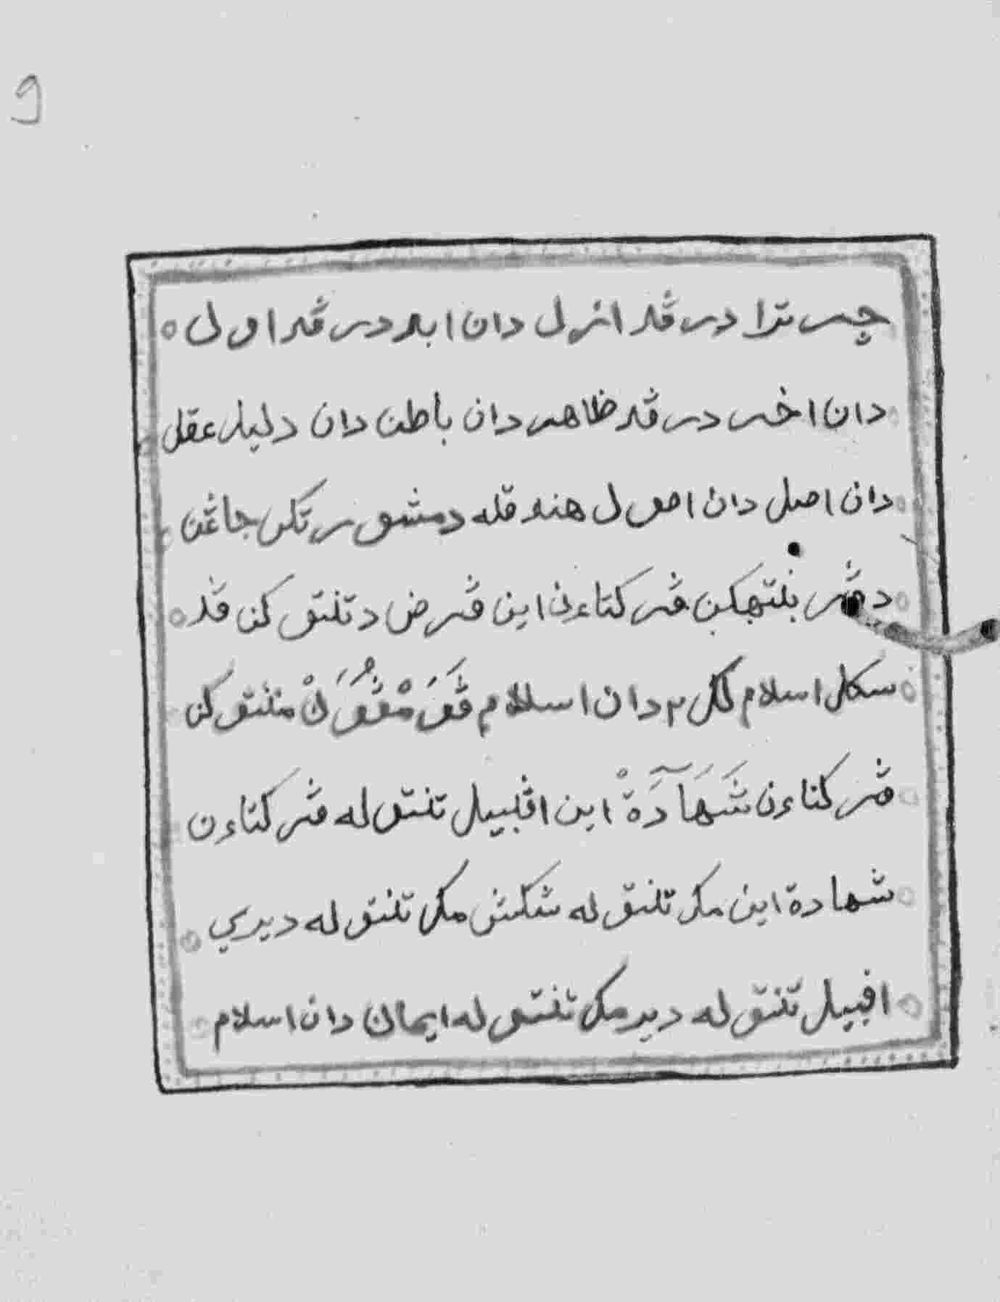 9
چرترا درڤد ازل دان ابد درڤد اول
دان اخر درڤد ظاهر دان باطن دان دليل عقل
دان اصل دان اصول هندقله دمشهورتكن جاڠن
دڤربنتهكن ڤركتاءن اين ڤرض دتنتوكن ڤد
سكل اسلام لكي٢ دان اسلام ڤَرَمْڤُوَنْ مننتوكن
ڤركتاءن شَهَادَةْ اين اڤبيل تنتوله ڤركتاءن
شهادة اين مك تنتوله مك تنتوله ديري
اڤبيل تنتوله دير مك تنتوله ايمان دان اسلام